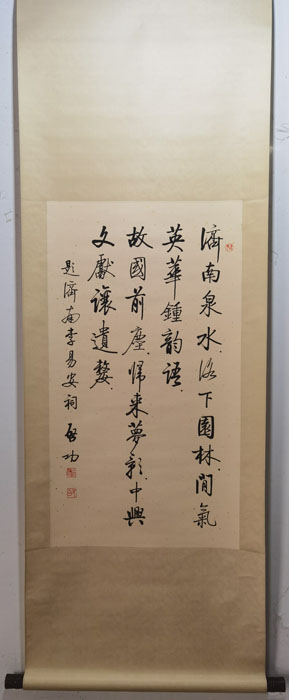 濟南泉水洛下園林間氣
英華鍾韵語
故國前塵歸來夢影中興
文獻讓遺嫠
題濟南李易安祠 啟功